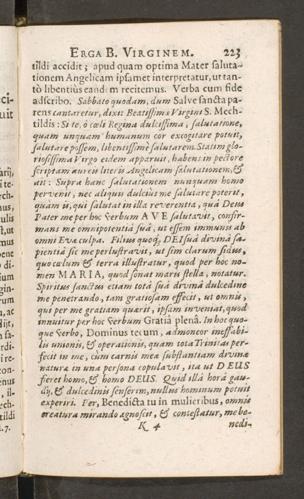 ERGA B. VIRGINEM. 223
tildi accidit; apud quam optima Mater saluta-
tionem Angelicam ipsamet interpretatur, ut tan-
tò libentiùs eandem recitemus. Verba cum fide
adscribo. Sabbato quodam, dum Salve sancta pa-
rens cantaretur, dixit Beatissimæ Virgini S. Mech-
tildis: Si te, ô cæli Regina dulcissima, salutatione,
quam unquam humanum cor excogitare potuit,
salutare possem, libentissimè salutarem. Statim glo-
riosissima Virgo eidem apparuit, habens in pectore
scriptam aureis literis Angelicam salutationem, &
ait: Supra hanc salutationem nunquam homo
pervenit, nec aliquis dulcius me salutare poterit,
quàm is, qui salutat in illa reverentia, quâ Deus
Pater me per hoc verbum AVE salutavit, confir-
mans me omnipotentiâ suâ, ut essem immunis ab
omni Evæ culpa. Filius quoq; DEI suâ divinâ sa-
pientiâ sic me perlustravit, ut sim clarum sidus,
quo cælum & terra illustratur, quod per hoc no-
men MARIA, quod sonat maris stella, notatur.
Spiritus sanctus etiam totâ suâ divinâ dulcedine
me penetrando, tam gratiosam effecit, ut omnis,
qui per me gratiam quærit, ipsam inveniat, quod
innuitur per hoc verbum Gratiâ plenâ. In hoc quo-
que verbo, Dominus tecum, admoneor ineffabi-
lis unionis, & operationis, quam tota Trinitas per-
fecit in me, cùm carnis meæ substantiam divinæ
naturæ in una persona copulavit, ita ut DEUS
fieret homo, & homo DEUS. Quid illâ horâ gau-
dij, & dulcedinis senserim, nullus hominum potuit
experiri. Per, Benedicta tu in mulieribus, omnis
creatura mirando agnoscit, & contestatur, me be-
K 4 nedi-